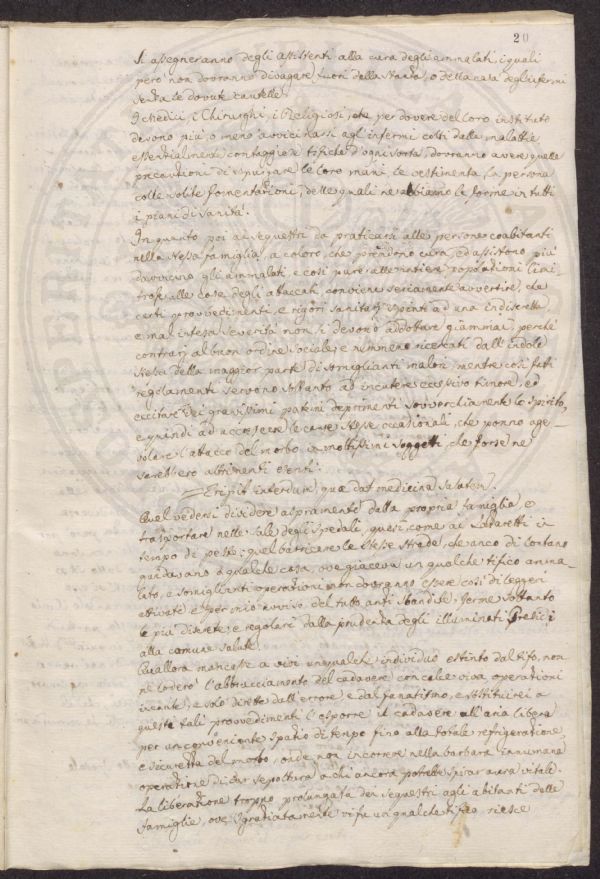 20
Si assegneranno degli assistenti alla cura degli ammalati, i quali
però non dovranno divagare fuori della stanza, o della casa degl'infermi
senza le dovute cautelle.
I Medici, i Chirurghi, i Religiosi, che per dovere del loro instituto
devono più o meno avvicinarsi agl'infermi colti dalla malattie
essenzialmente contaggiose tifiche d'ogni sorta, dovranno avere quelle
precauzioni di espurgare le loro mani, le vestimenta, la persona
colle solite fomentazioni, delle quali ne abbiamo le forme in tutti
i piani di sanità.
In quanto poi ai sequestri da praticarsi alle persone coabitanti
nella stessa famiglia, a coloro, che prendono cura, ed assistono più
dovvicino gli ammalati, e così pure alle intiere popolazioni limi-
trofe alle case degli attaccati, conviene seriamente avvertire, che
certi provvedimenti, e rigori sanitarj spinti ad una indiscretta
e mal intesa severità non si devono addottare giammai, perchè
contrarj al buon ordine sociale, e nemmeno ricercati dall'indole
stessa della maggior parte di somiglianti malori, mentre così fatti
regolamenti servono soltanto ad incutere eccessivo timore, ed
eccitare dei gravissimi patemi deprimenti sovverchiamente lo spirito,
e quindi ad accrescere le cause stesse occasionali, che ponno age-
volare l'attacco del morbo in moltissimi soggetti, che forse ne
sarebbero altrimenti esenti.
Eripit interdum, quae dat medicina salutem.
Quel vedersi dividere aspramente dalla propria famiglia, e
trasportare nelle sale degli spedali, quasi come ai Lazzaretti in
tempo di peste; quel batticare le stesse strade, che anco di lontano
guidavano a qualche casa, ove giaceva un qualche tifico amma-
lato, e somiglianti operazioni non dovranno essere così di leggeri
attivate, e per mio avviso del tutto anzi sbandite, ferme soltanto
le più discrete, e regolari dalla prudenza degli illuminati Pratici
alla comune salute.
Quallora mancasse a vivi un qualche individuo estinto dal tifo, non
ne loderò l'abbrucciamento del cadavere con calce viva, operazioni
incaute, e solo dirette dall'errore e dal fanatismo, e sostituirei a
questi tali provvedimenti l'esporre il cadavere all'aria libera
per un conveniente spazio di tempo fino alla totale refrigerazione,
e sicurezza del morbo, onde non incorrere nella barbara innumana
operazione di dar sepoltura a chi ancora potrebbe spirar aura vitale.
La liberazione troppo prolungata dei sequestri agli abitanti delle
famiglie, ove sgraziatamente vi fu un qualche tifico riesce